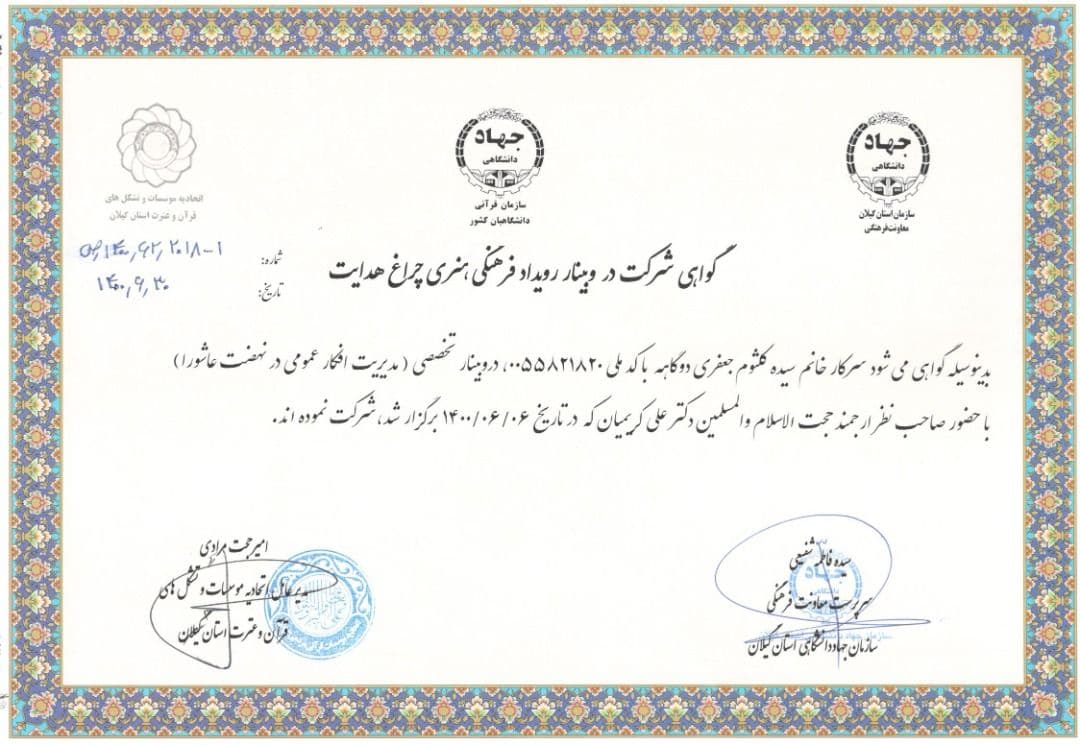 جهاد
دانشگاهی
سازمان استان گیلان
معاونت فرهنگی
جهاد
دانشگاهی
سازمان قرآنی
دانشگاهیان کشور
اتحادیه موسسات و تشکل های
قرآن و عترت استان گیلان
گواهی شرکت در وبینار رویداد فرهنگی هنری چراغ هدایت
شماره:
تاریخ: ۱۴۰۰,۹,۳۰
بدینوسیله گواهی می شود سرکار خانم سیده کلثوم جعفری دوگاهه با کد ملی ۰۰۵۵۸۲۱۸۲۰، در وبینار تخصصی (مدیریت افکار عمومی در نهضت عاشورا)
با حضور صاحب نظر ارجمند حجت الاسلام والمسلمین دکتر علی کریمیان که در تاریخ ۱۴۰۰/۰۶/۰۶ برگزار شد، شرکت نموده اند.
سیده فاطمه شفیعی
سرپرست معاونت فرهنگی
سازمان جهاددانشگاهی استان گیلان
امیر حجت مرادی
مدیرعامل اتحادیه موسسات و تشکل های
قرآن و عترت استان گیلان